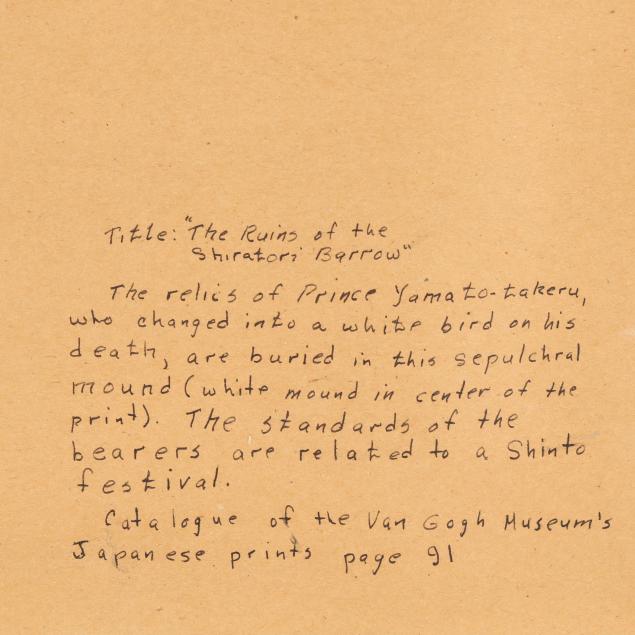 Title: "The Ruins of the
Shiratori Barrow"
The relics of Prince Yamato-takeru,
who changed into a white bird on his
death, are buried in this sepulchral
mound (white mound in center of the
print). The standards of the
bearers are related to a Shinto
festival.
Catalogue of the Van Gogh Museum's
Japanese prints page 91